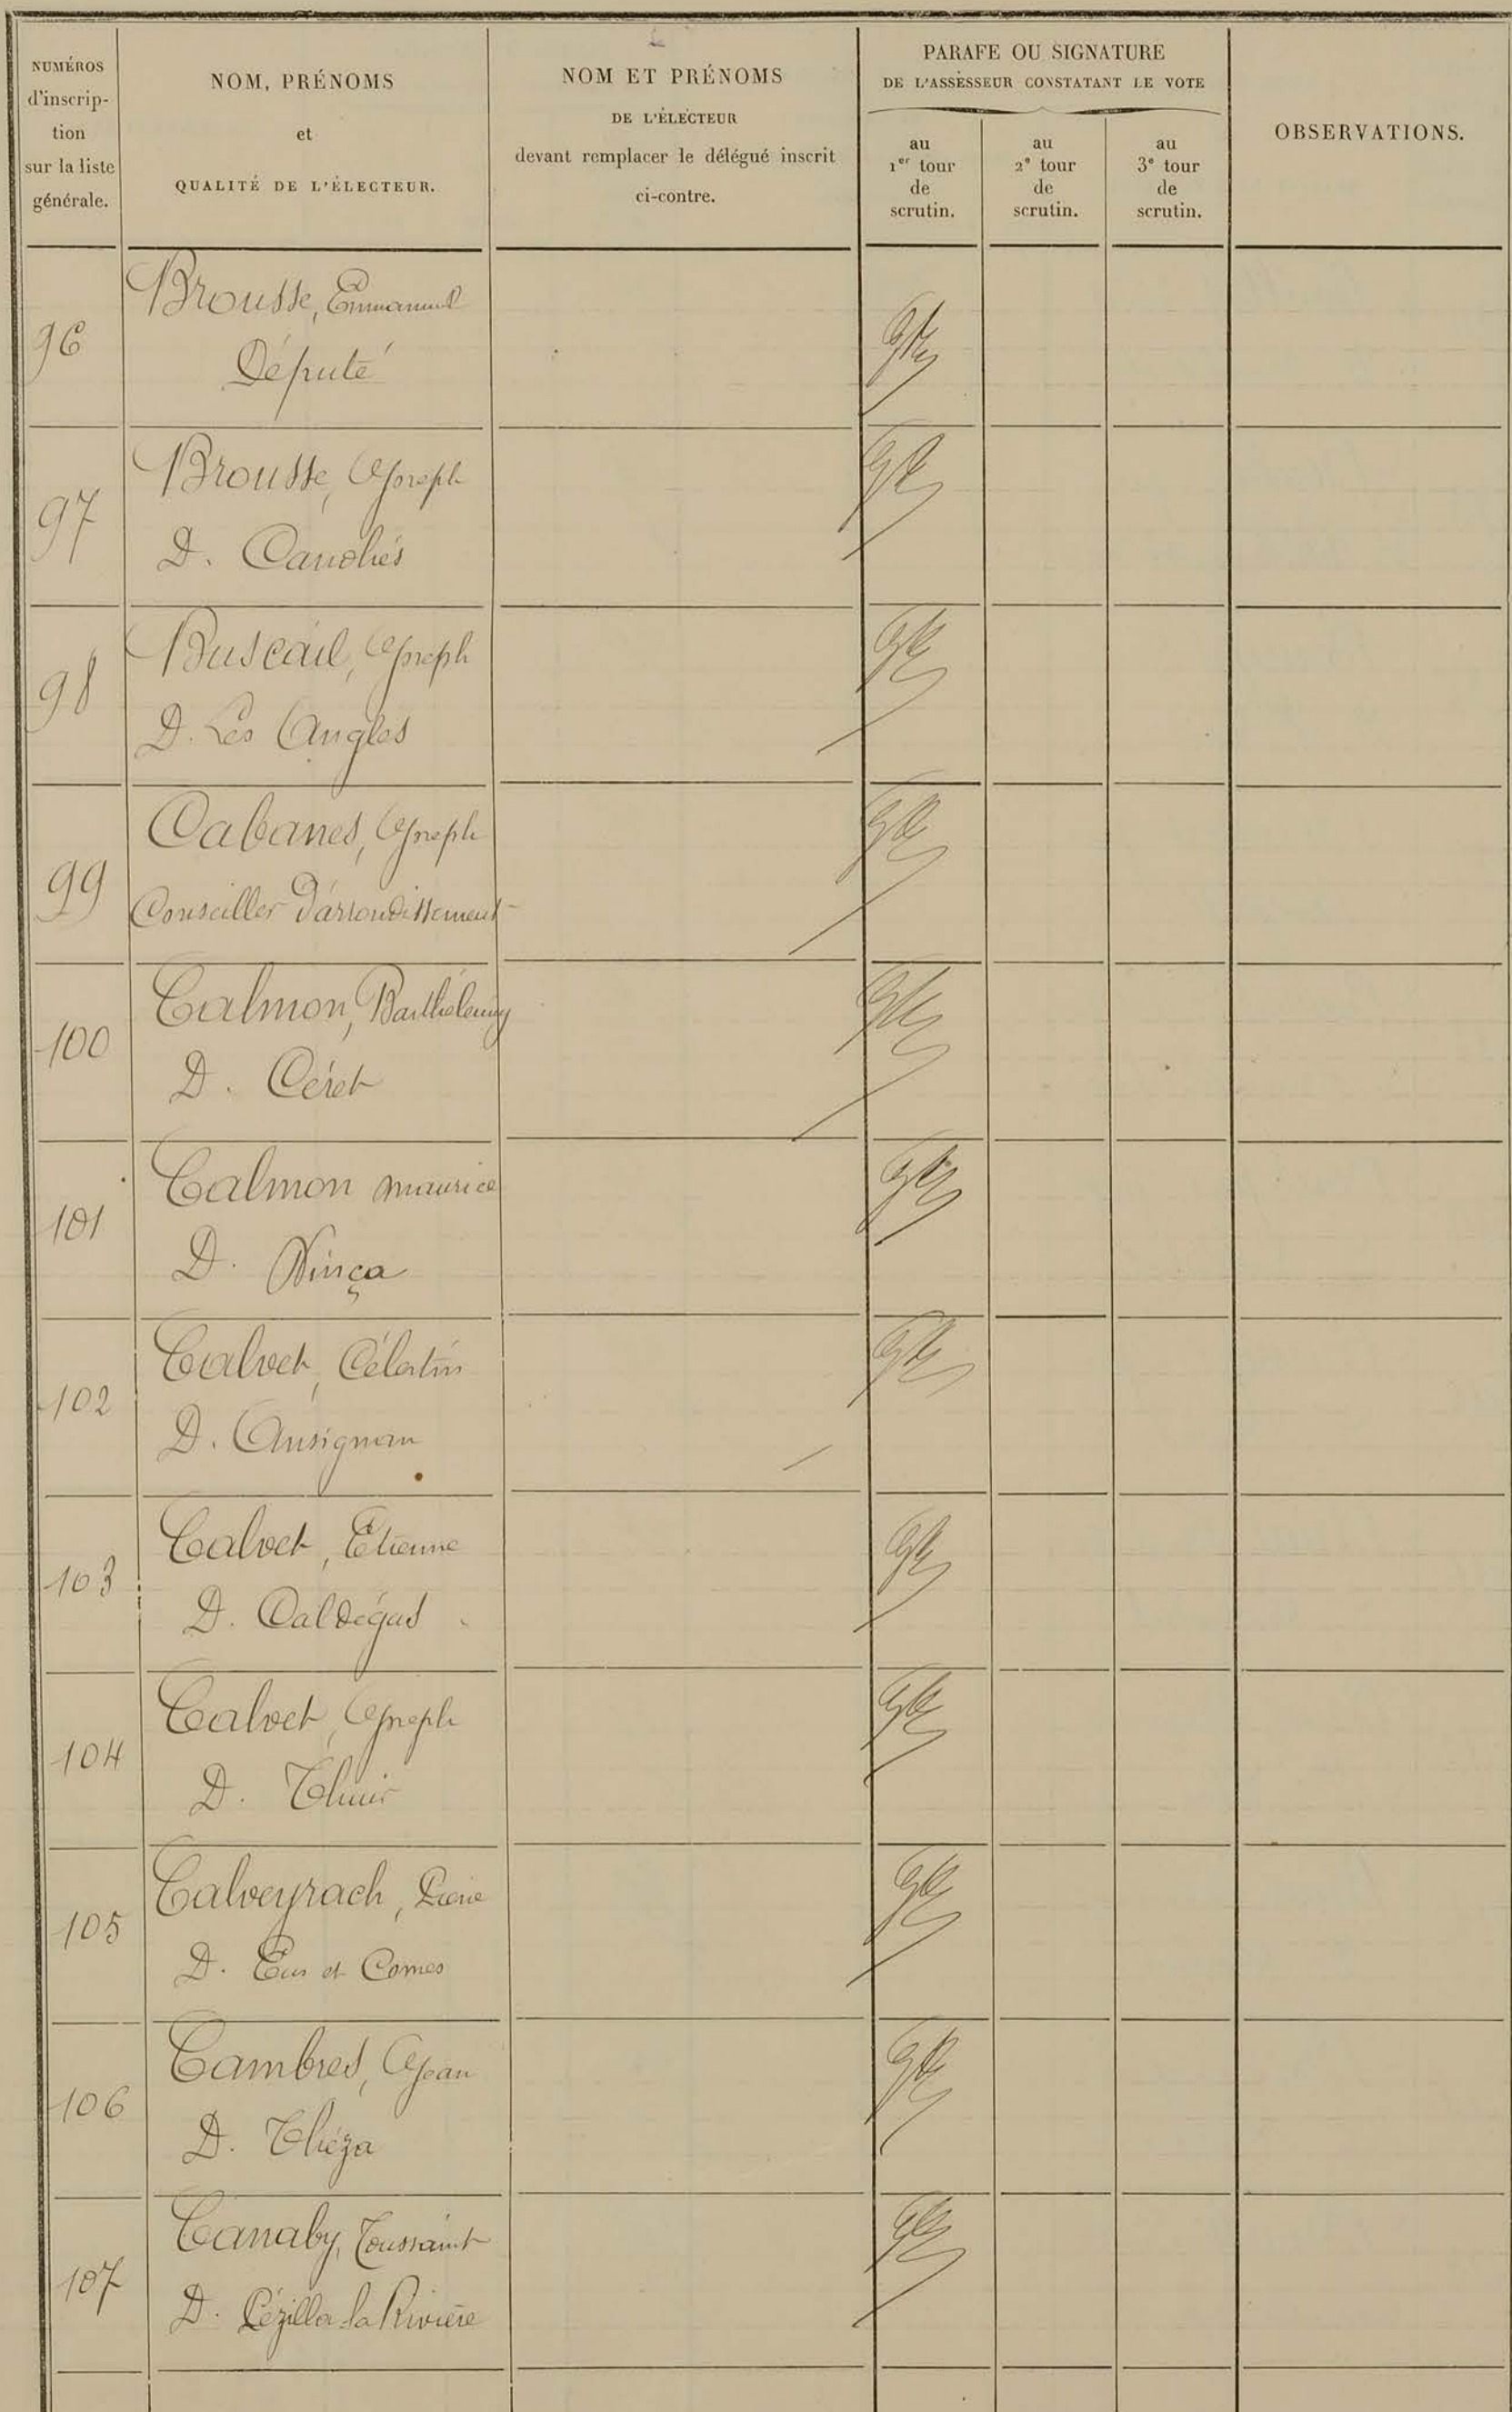 NUMÉROS
d'inscrip-
tion
sur la liste
générale.
NOM, PRÉNOMS
et
QUALITÉ DE L'ÉLECTEUR.
NOM ET PRÉNOMS
DE L'ÉLECTEUR
devant remplacer le délégué inscrit
ci-contre.
PARAFE OU SIGNATURE
DE L'ASSESSEUR CONSTATANT LE VOTE
au
1er tour
de
scrutin.
au
2e tour
de
scrutin.
au
3e tour
de
scrutin.
OBSERVATIONS.
96
Brousse, Emmanuel
Député
97
Brousse, Joseph
D. Canohès
98
Buscail, Joseph
D. Les Angles
99
Cabanes, Joseph
Conseiller d'arrondissement
100
Calmon, Barthélemy
D. Céret
101
Calmon Maurice
D. Vinça
102
Calvet, Célestin
D. Ansignan
103
Calvet, Étienne
D. Caldégas
104
Calvet, Joseph
D. Thuir
105
Calveyrach, Pierre
D. Eus et Comes
106
Cambres, Jean
D. Théza
107
Canaby, Toussaint
D. Pézilla la Rivière